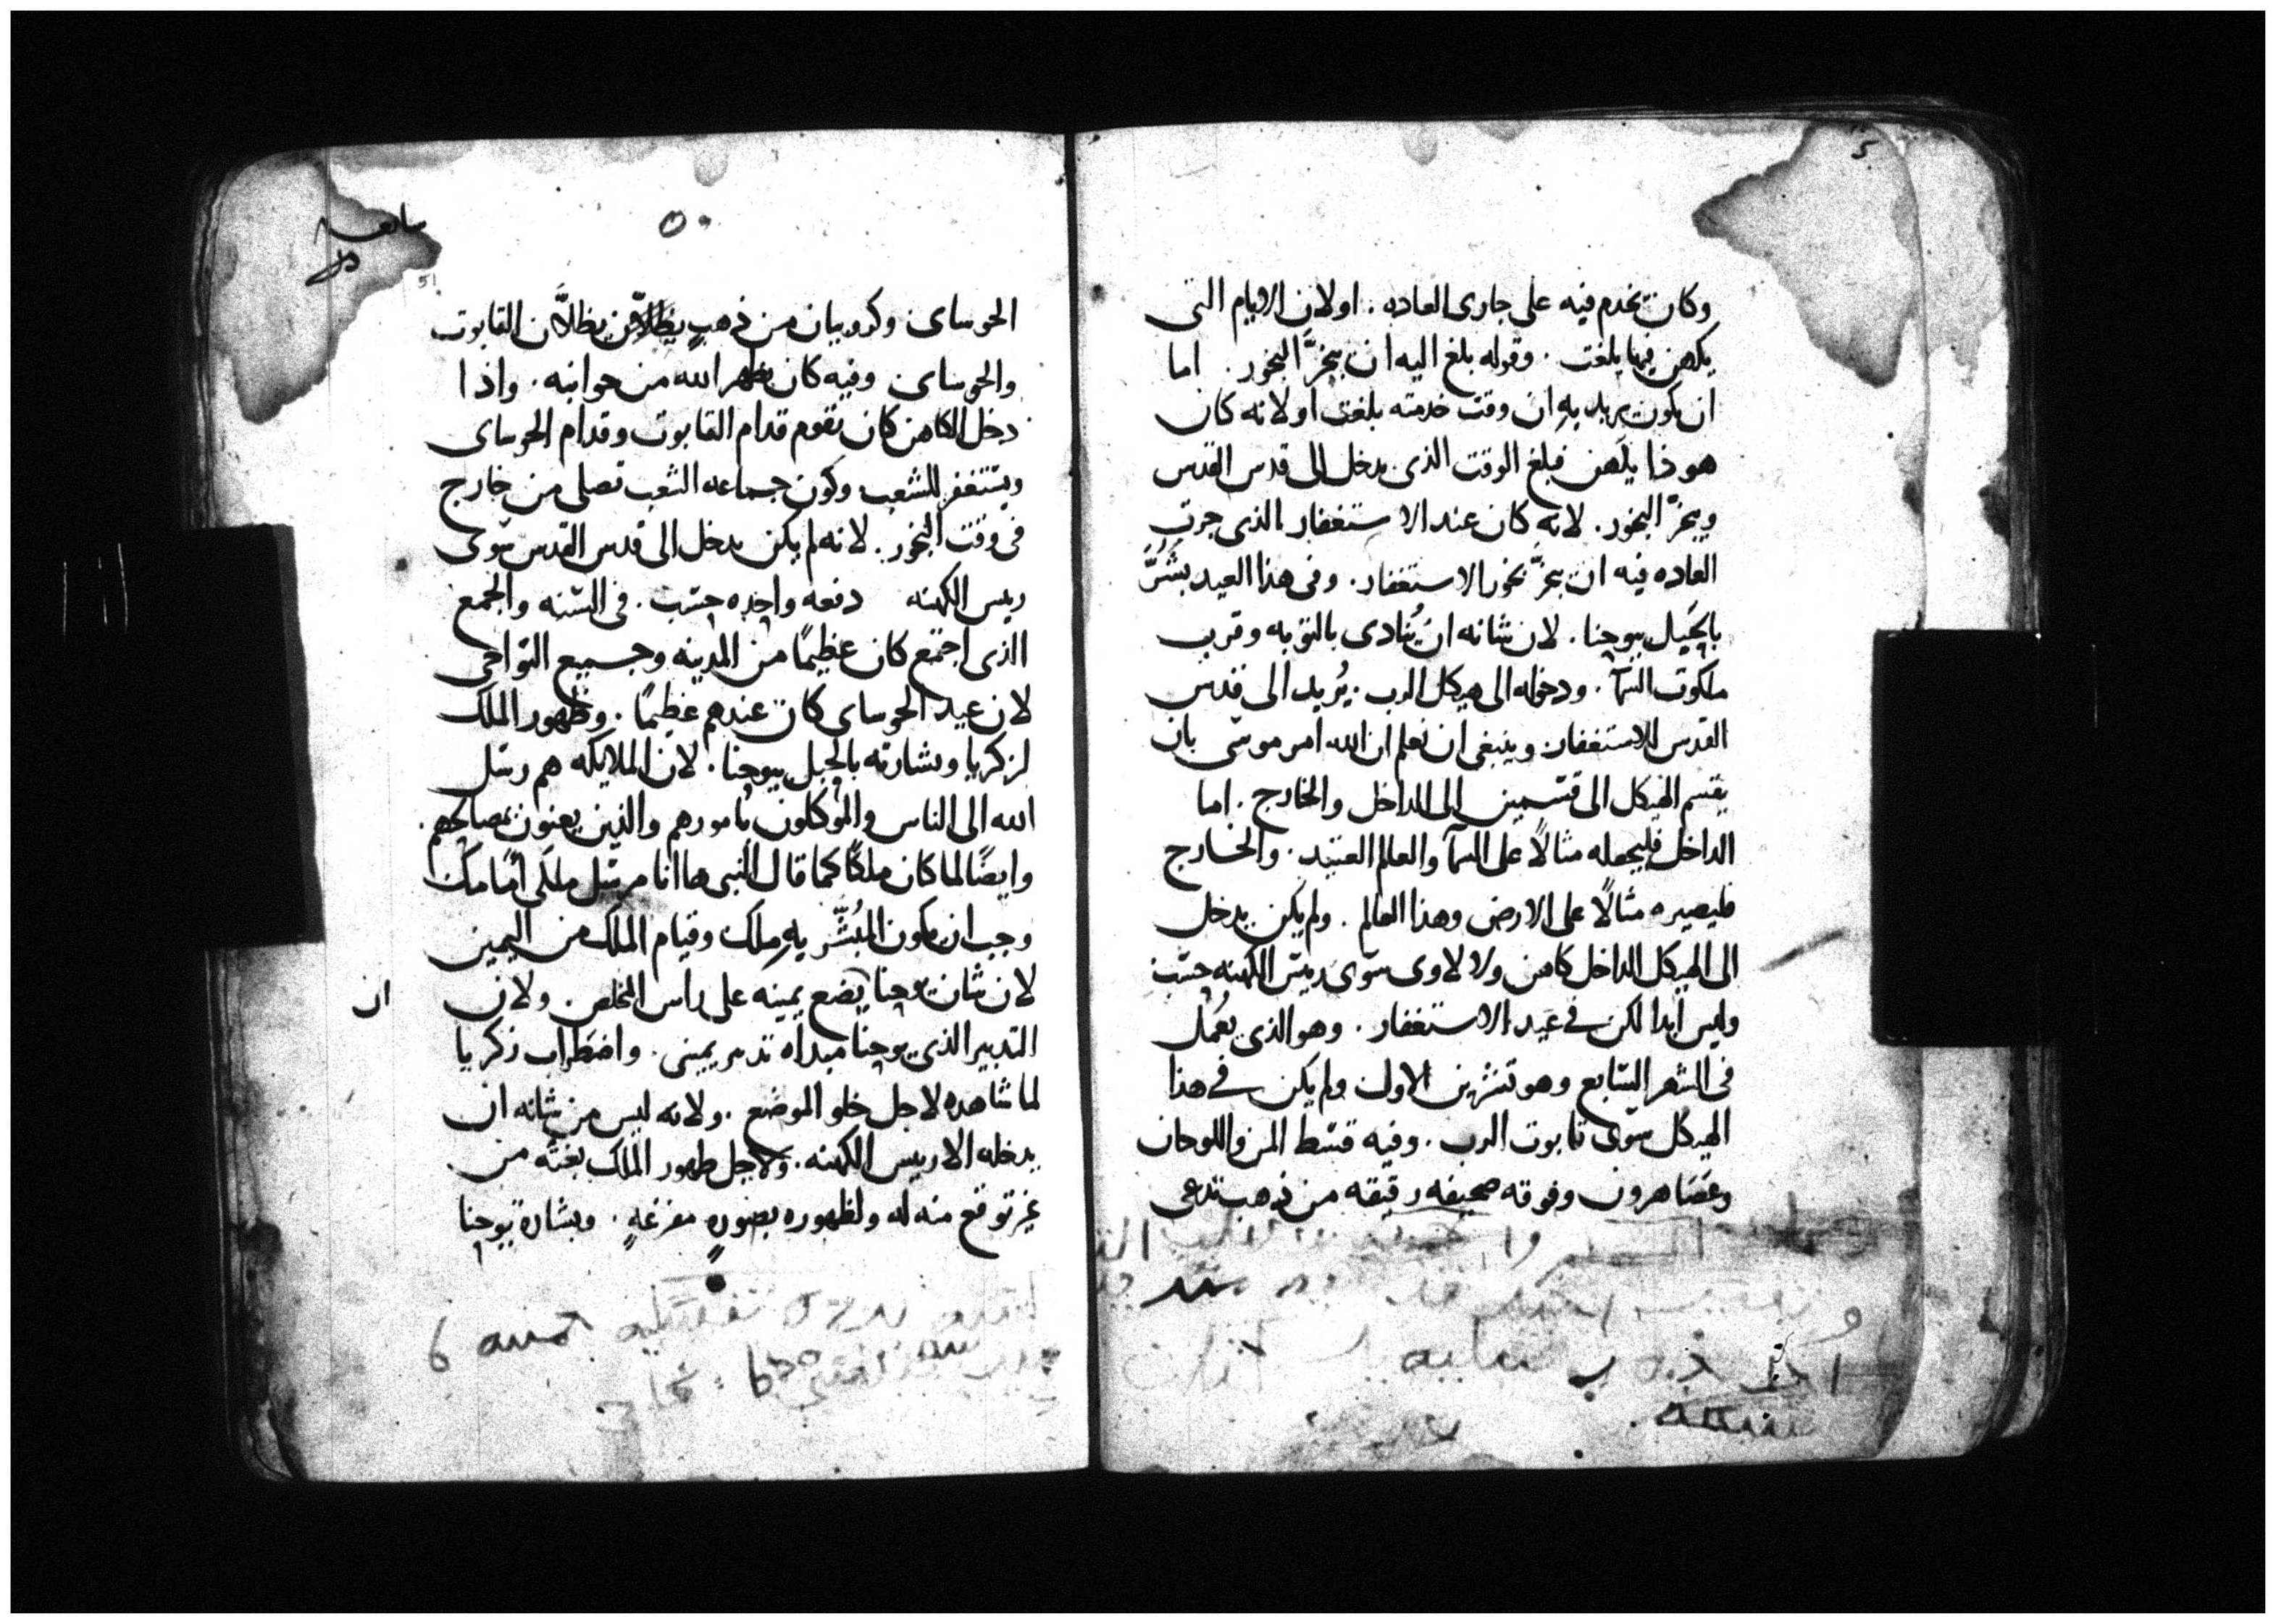 وكان يخدم فيه على جارى العاده . او لان الايام التى
يكهن فيها بلغت . وقوله بلغ اليه ان يبخرَّ البخور . اما
ان يكون يريد به ان وقت خدمته بلغت او لانه كان
هوذا يكهن فبلغ الوقت الذى يدخل الى قدس القدس
ويبخرّ البخور . لانه كان عند الاستغفار الذى جرت
العاده فيه ان يبخرَّ بخور الاستغفار . وفى هذا العيد بشرَّ
بالحَبل بيوحنا . لان شانه ان يُنادى بالتوبه وقرب
ملكوت السمآ . ودخوله الى هيكل الرب . يُريد الى قدس
القدس للاستغفار وينبغى ان نعلم ان الله امر موسى بان
يقسم الهيكل الى قسمين الى الداخل والخارج . اما
الداخل فليجعله مثالاً على السمآ والعالم العتيد . والخارج
فليصيره مثالاً على الارض وهذا العالم . ولم يكن يدخل
الى الهيكل الداخل كاهن ولا لاوى سوى رييس الكهنه حسب
وليس ابدا لكن فى عيد الاستغفار . وهو الذى يعُمل
فى الشهر السابع وهو تشرين الاول ولم يكن فى هذا
الهيكل سوى تابوت الرب . وفيه قسط المن واللوحان
وعصَا هرون وفوقه صحيفه رقيقه من ذهب تدعى
٥٠
51
الحوساى وكروبيان من ذهبٍ يظلاَّن التابوت
والحوساى وفيه كان يظهر الله من جوانبه . واذا
دخل الكاهن كان يقوم قدام التابوت وقدام الحوساى
ويستغفر للشعب وكون جماعه الشعب تصلى من خارج
فى وقت البخور . لانه لم يكن يدخل الى قدس القدس سوى
رييس الكهنه دفعه واحده حسب . فى السنه والجمع
الذى اجتمع كان عظيمًا من المدينه وجميع النواحى
لان عيد الحوساى كان عندهم عظيمًا . وظهور الملك
لزكريا وبشارته بالحبل بيوحنا . لان الملايكه هم رسل
الله الى الناس والموكلون بامورهم والذين يعنون بمصالحهم .
وايضًا لما كان ملكًا كما قال النبى ها انا مرسل ملكى امامك
وجب ان يكون المبُشّر به ملك وقيام الملك من اليمين
لان شان يوحنا يضع يمينه على راس المخلص . ولان
ان
التدبير الذى يوحنا مبداه تدبير يمينى . واضطراب زكريا
لما شاهده لاجل خلو الموضع . ولانه ليس من شانه ان
يدخله الا رييس الكهنه . ولاجل ظهور الملك بغته من
غير توقع منه له ولظهوره بصورهٍ مفزعهٍ . وبشارة يوحنا